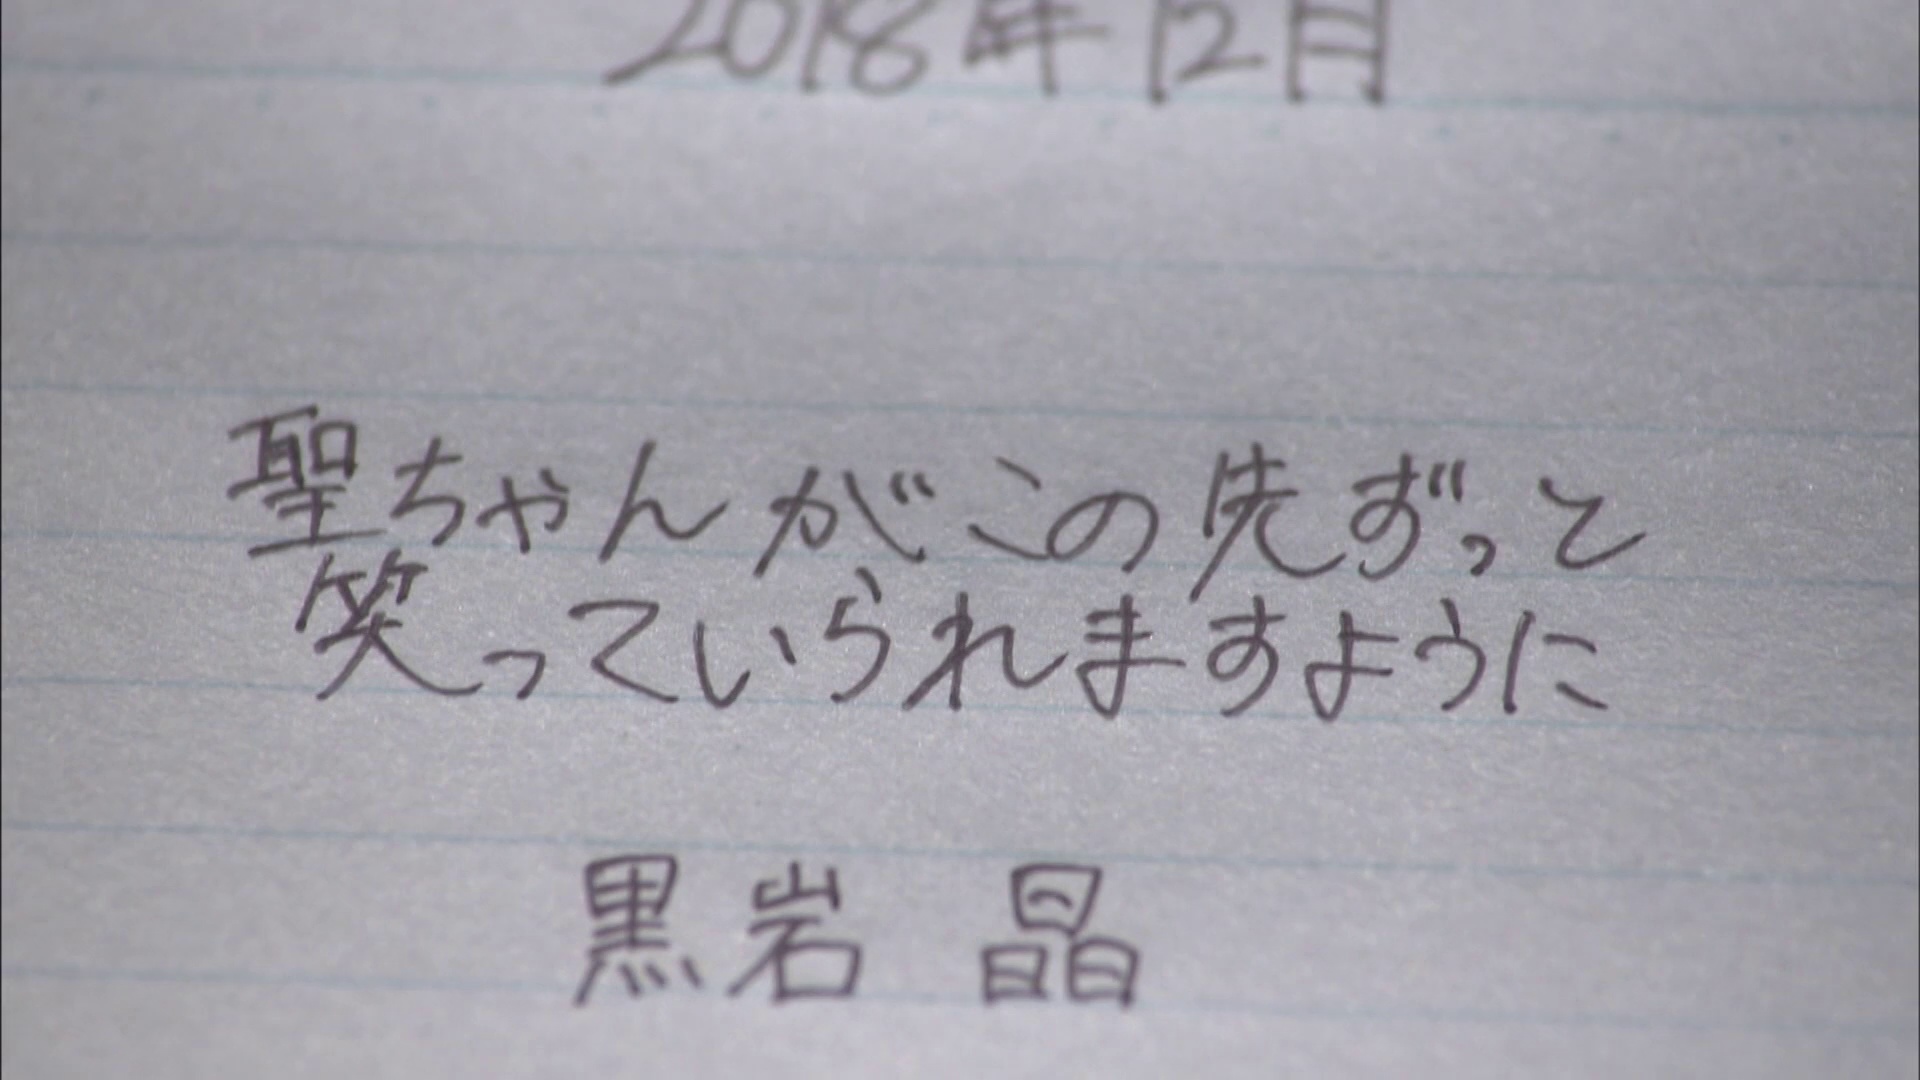 2018年12月
聖ちゃんがこの先ずっと
笑っていられますように
黒岩 晶